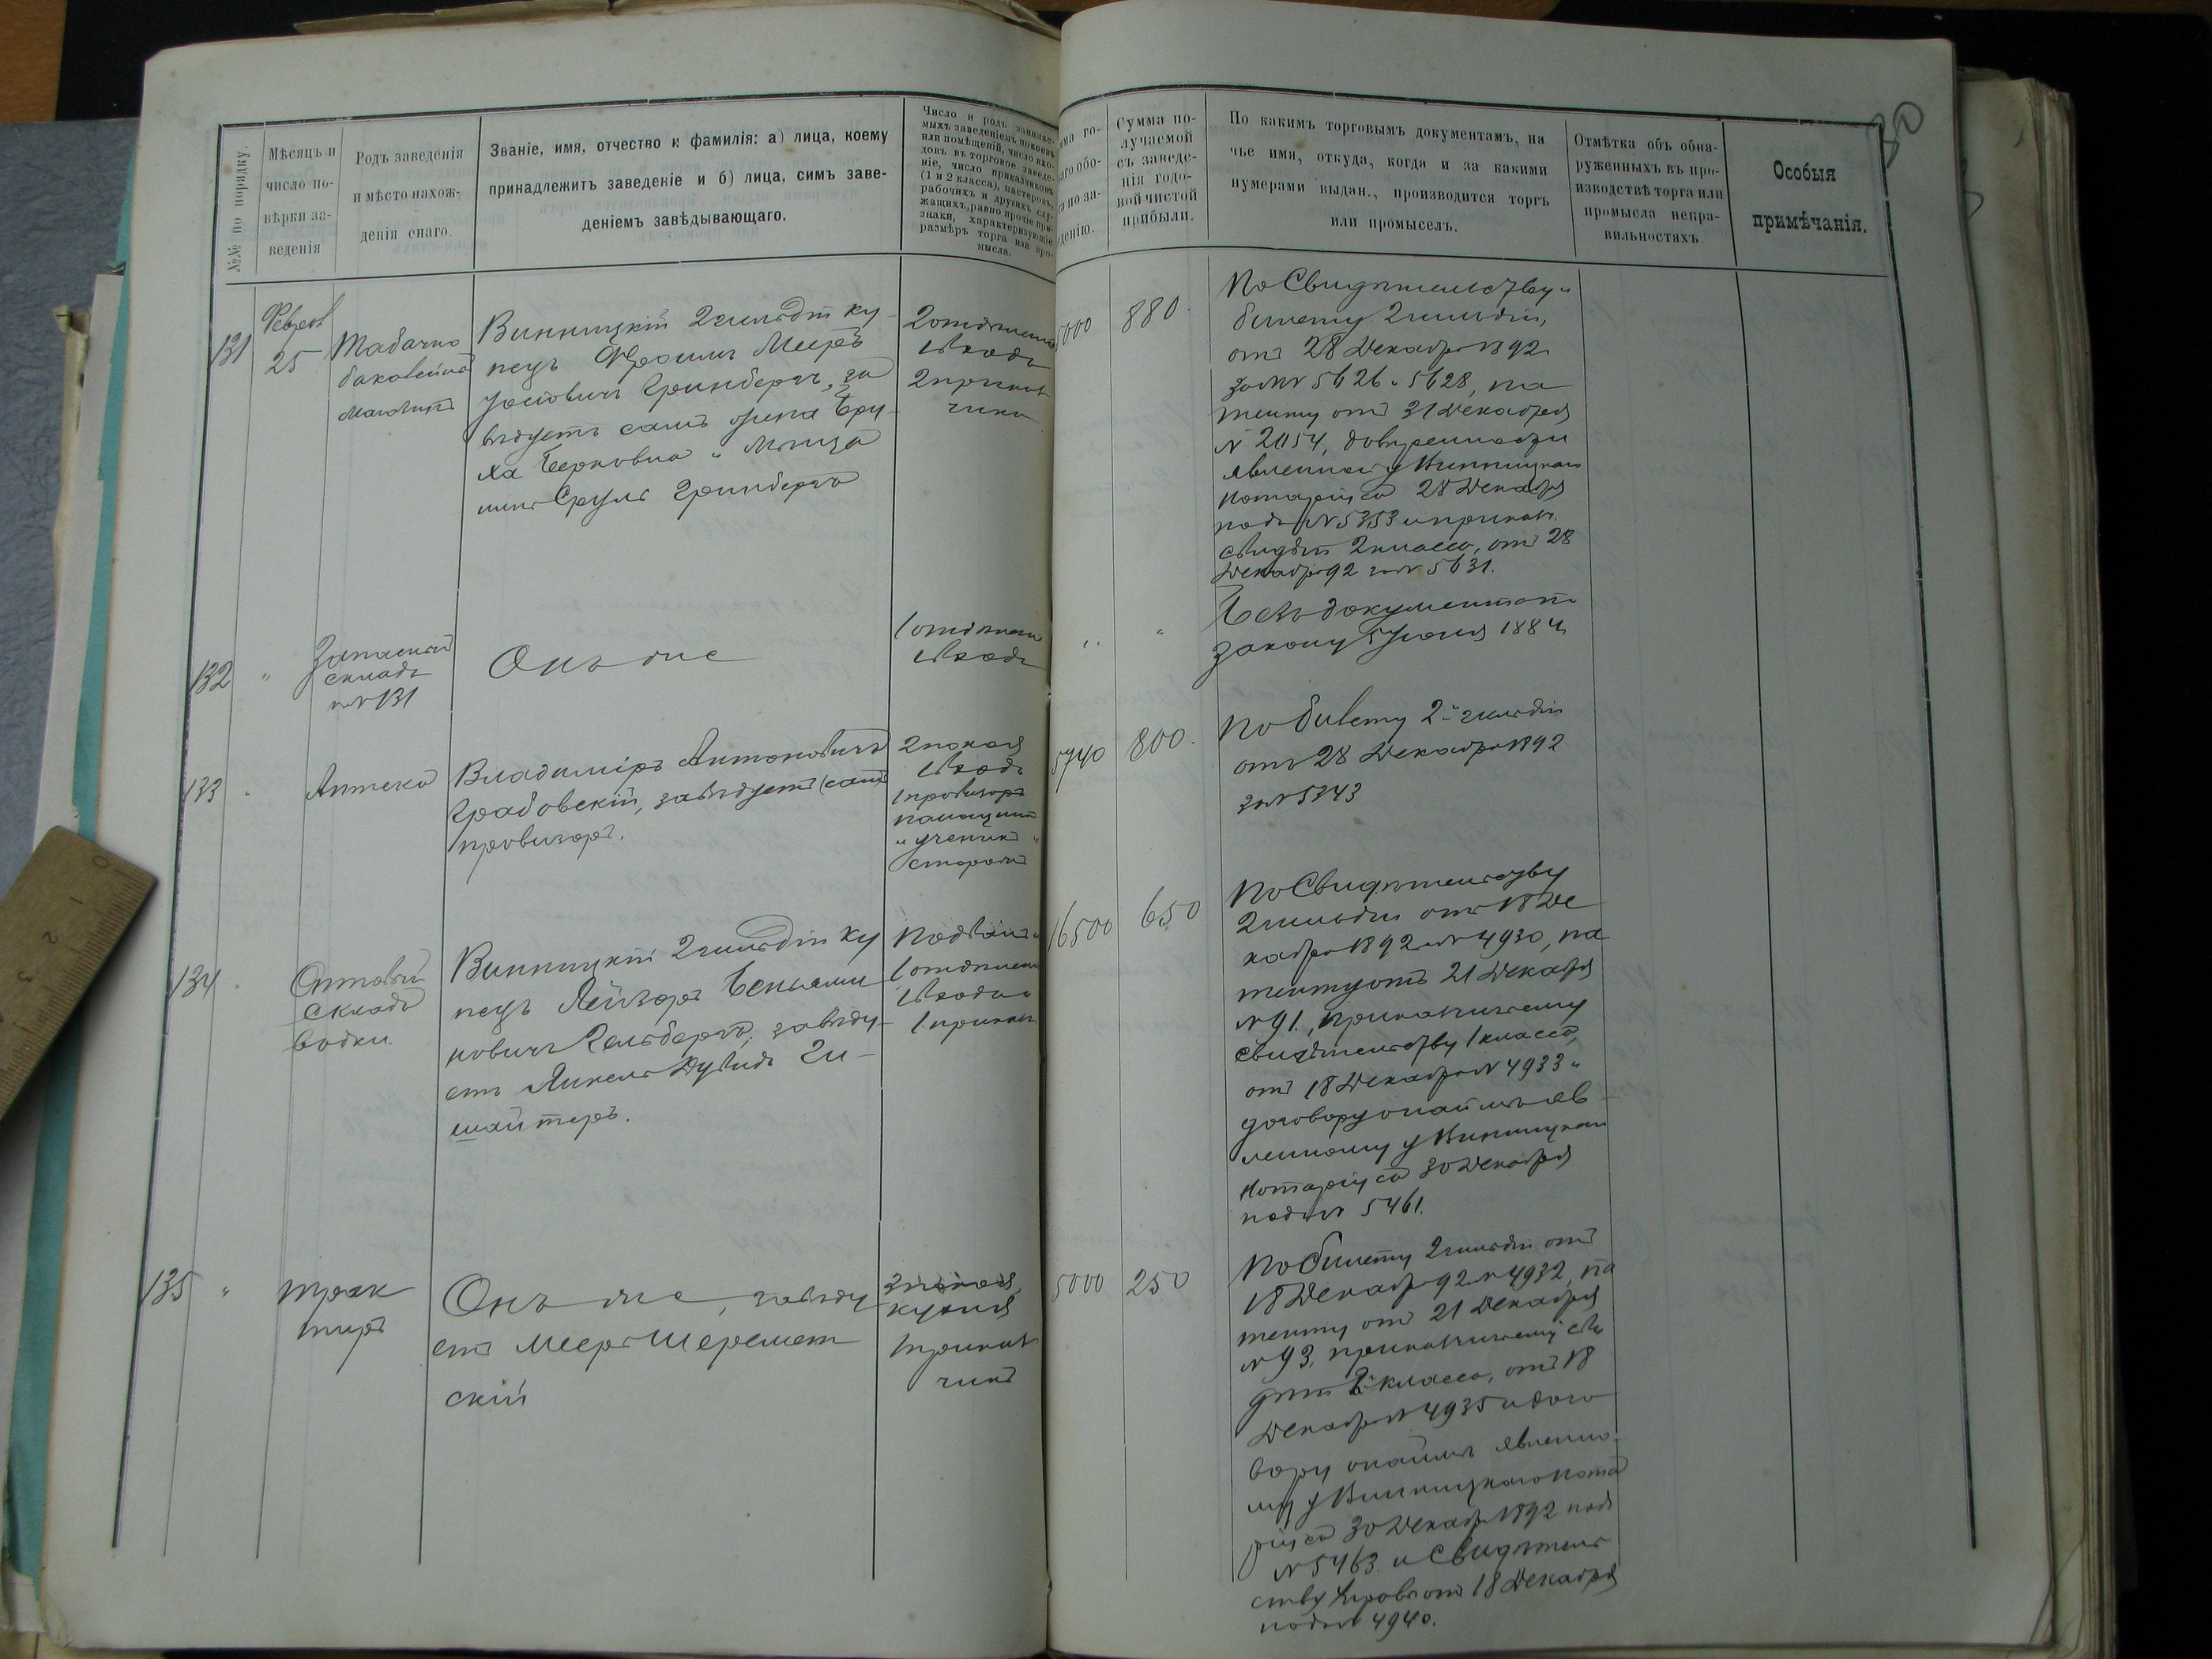 №№ по порядку.
Мѣсяцъ и
число по-
вѣрки за-
веденія
Родъ заведенія
и мѣсто нахож-
денія онаго.
Званіе, имя, отчество и фамилія: а) лица, коему
принадлежитъ заведеніе и б) лица, симъ заве-
деніемъ завѣдывающаго.
Число и родъ занимае-
мыхъ заведеніемъ покоевъ
или помѣщеній, число вхо-
довъ въ торговое заведе-
ніе, число приказчиковъ
(1 и 2 класса), мастеровъ,
рабочихъ и другихъ слу-
жащихъ, равно прочіе при-
знаки, характеризующіе
размѣръ торга или про-
мысла.
ма го-
аго обо-
а по за-
денію.
Сумма по-
лучаемой
съ заведе-
нія годо-
вой чистой
прибыли.
По какимъ торговымъ документамъ, на
чье имя, откуда, когда и за какими
нумерами выдан., производится торгъ
или промыселъ.
Отмѣтка объ обна-
руженныхъ въ про-
изводствѣ торга или
промысла непра-
вильностяхъ
Особыя
примѣчанія.
80
131
25
Табачно
магазинъ
Винницкій 2 гильдіи ку-
пецъ Мееръ
Іосіовичъ Гринбергъ, за
вѣдуетъ самъ жена Бру-
ха Берковна и
Сруль Гринбергъ
2 отдѣленія
1 входъ
2 приказ
чика
5000
880.
По Свидѣтельству и
билету 2 гильдіи,
отъ 28 Декабря 1892
за №№ 5626 и 5628, па
тенту отъ 31 Декабря
№ 2054, довѣренности
явленной у Винницкаго
нотаріуса 28 Декабря
подъ № 5353 и приказ.
свидѣт 2 класса, отъ 28
Декабря 92 за № 5631.
132
"
Запасный
складъ
къ № 131
Онъ же
1 отдѣлені
1 входъ
"
"
Безъ документовъ
закону 5 Іюня 1884
133
"
Аптека
Владиміръ Антоновичъ
Грабовскій, завѣдуетъ самъ
провизоръ.
2 покоя
1 входъ
1 провизоръ
помощникъ
и ученикъ и
сторожъ
5740
800.
По билету 2й гильдіи
отъ 28 Декабря 1892
за № 5343
134
"
Оптовый
складъ
водки.
Винницкій 2 гильдіи ку
пецъ Лейзоръ Беньями
новичъ Гельбергъ, завѣду-
етъ Янкель Дувидъ Ги-
шайтеръ.
Подвалъ
1 отдѣлені
1 входъ
1 приказч
16500
650
По Свидѣтельству
2 гильдіи отъ 18 Де
кабря 1892 № 4930, па
тенту отъ 21 Декабря
№ 91, приказчичьему
свидѣтельству 1 класса,
отъ 18 Декабря № 4933 и
договору о наймѣ яв-
ленному у Винницкаго
Нотаріуса 30 Декабря
подъ № 5461.
135
"
Трак
тиръ
Онъ же, завѣду
етъ Мееръ Шеремет
скій
3 покоя,
кухня
1 приказ
чикъ
5000
250
По билету 2 гильдіи отъ
18 Декабр 92 № 4932, па
тенту отъ 21 Декабря
№ 93, приказчичьему сви
дѣт 2 класса, отъ 18
Декабря № 4935 и дого
вору о наймѣ явленно-
му у Винницкаго нота
ріуса 30 Декабр 1892 подъ
№ 5463 и Свидѣтель
ству отъ 18 Декабря
подъ № 4940.